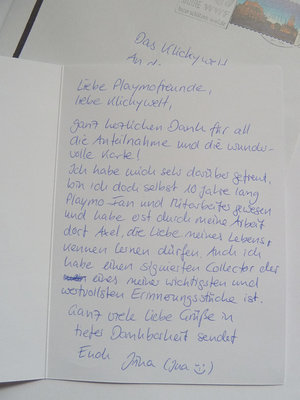 Das Klickywelt
An d.
Liebe Playmofreunde,
liebe Klickywelt,
ganz herzlichen Dank für all
die Anteilnahme und die wunder-
volle Karte!
Ich habe mich sehr darüber gefreut,
bin ich doch selbst 10 Jahre lang
Playmo-Fan und Mitarbeiter gewesen
und habe erst durch meine Arbeit
dort Axel, die Liebe meines Lebens,
kennen lernen dürfen. Auch ich
habe einen signierten Collector der
eines meiner wichtigsten und
wertvollsten Erinnerungsstücke ist.
Ganz viele liebe Grüße in
tiefer Dankbarkeit sendet
Euch